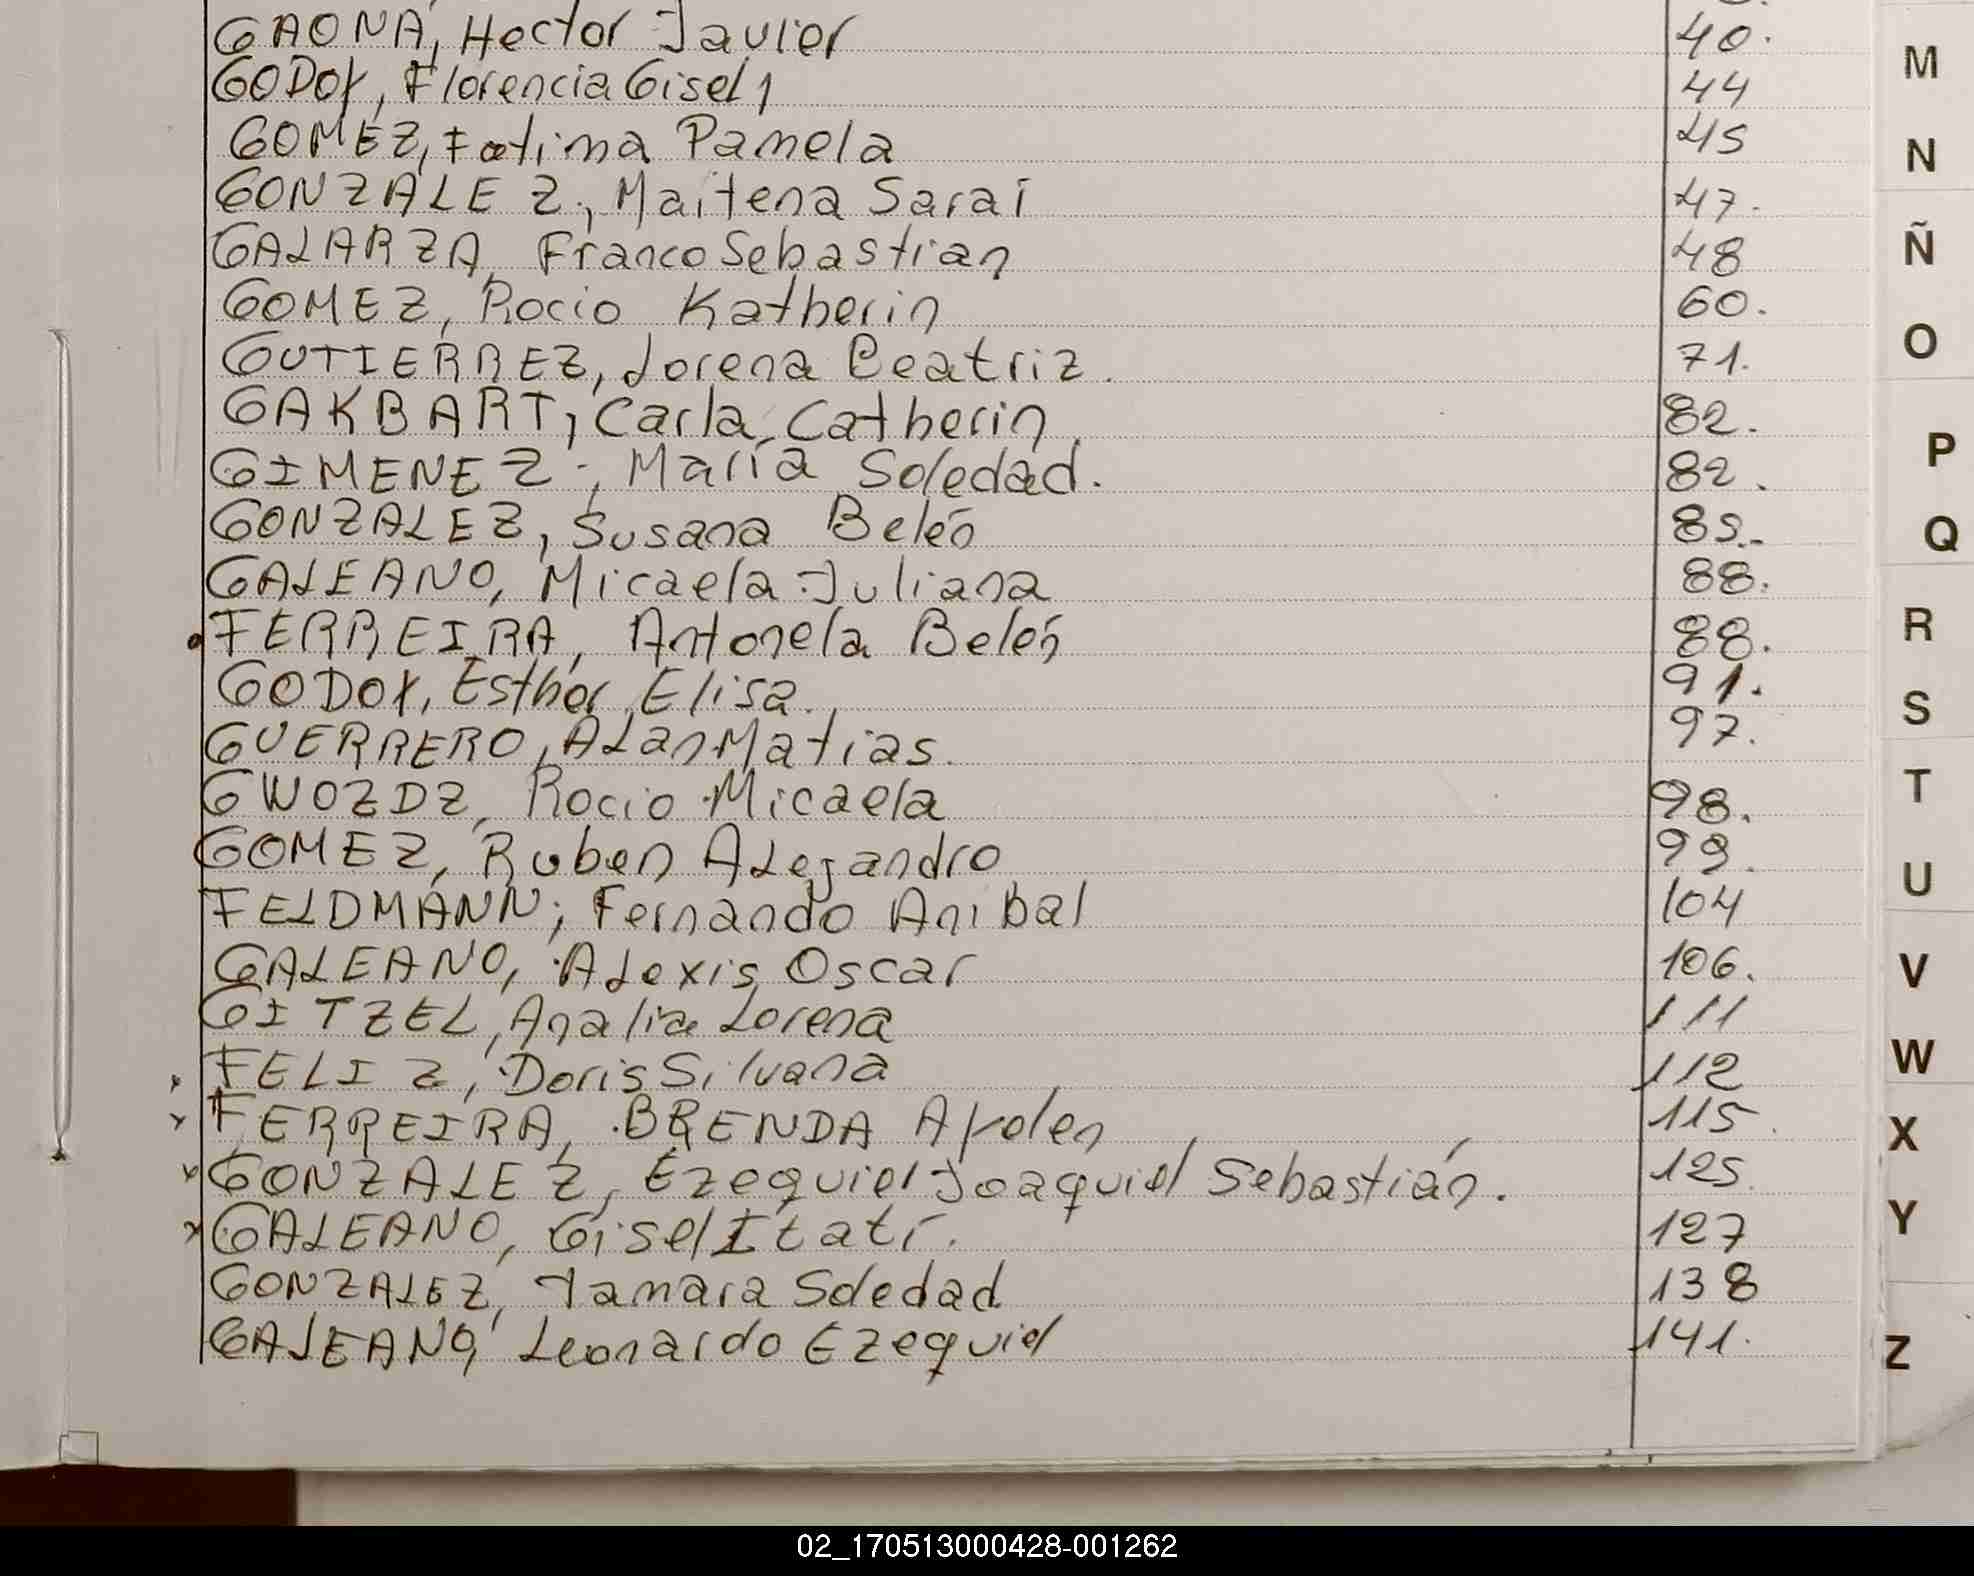 GAONA, Hector Javier 40.
GODOY, Florencia Gisel 44
GOMEZ, Fatima Pamela 45
GONZALEZ, Maitena Sarai 47.
GALARZA, Franco Sebastian 48
GOMEZ, Rocio Katherin 60.
GUTIERREZ, Lorena Beatriz. 71.
GAKBART, Carla Catherin 82.
GIMENEZ, María Soledad. 82.
GONZALEZ, Susana Belén 85.
GALEANO, Micaela Juliana 88.
FERREIRA, Antonela Belén 88.
GODOY, Esther Elisa. 91.
GUERRERO, Alan Matias. 97.
GWOZDZ, Rocio Micaela 98.
GOMEZ, Ruben Alejandro 99.
FELDMANN, Fernando Anibal 104
GALEANO, Alexis Oscar 106.
GITZEL, Analia Lorena 111
FELIZ, Doris Silvana 112
FERREIRA, BRENDA Ayelen 115.
GONZALEZ, Ezequiel Joaquiel Sebastián. 125
GALEANO, Gisel Itatí. 127
GONZALEZ, Tamara Soledad 138
GALEANO, Leonardo Ezequiel 141.
M
N
Ñ
O
P
Q
R
S
T
U
V
W
X
Y
Z
02_170513000428-001262